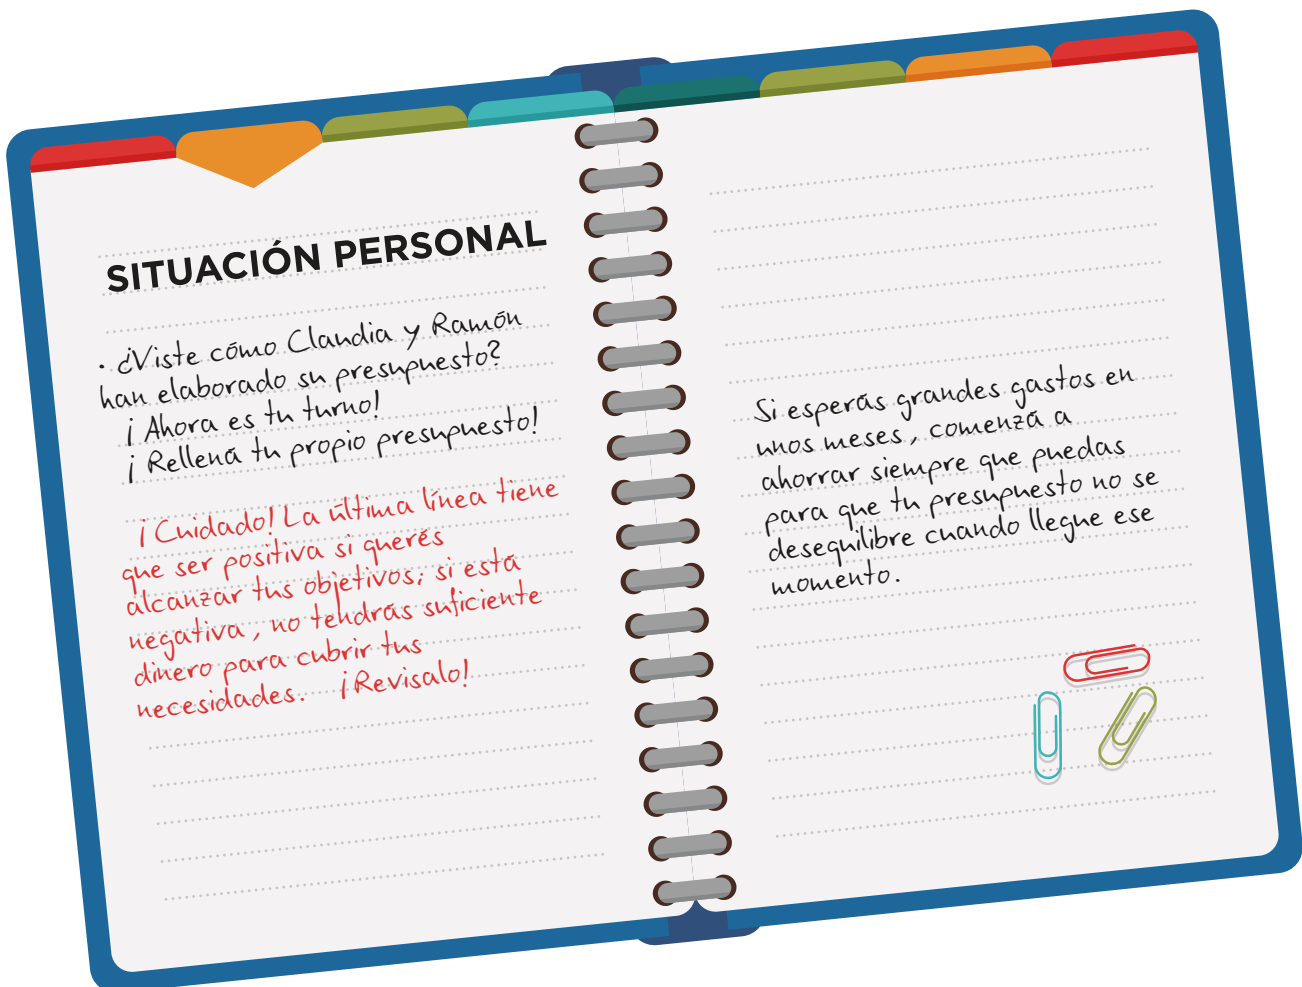 SITUACIÓN PERSONAL
· ¿Viste cómo Claudia y Ramón
han elaborado su presupuesto?
¡Ahora es tu turno!
¡Rellená tu propio presupuesto!
¡Cuidado! La última línea tiene
que ser positiva si querés
alcanzar tus objetivos; si está
negativa, no tendrás suficiente
dinero para cubrir tus
necesidades. ¡Revisalo!
Si esperás grandes gastos en
unos meses, comenzá a
ahorrar siempre que puedas
para que tu presupuesto no se
desequilibre cuando llegue ese
momento.